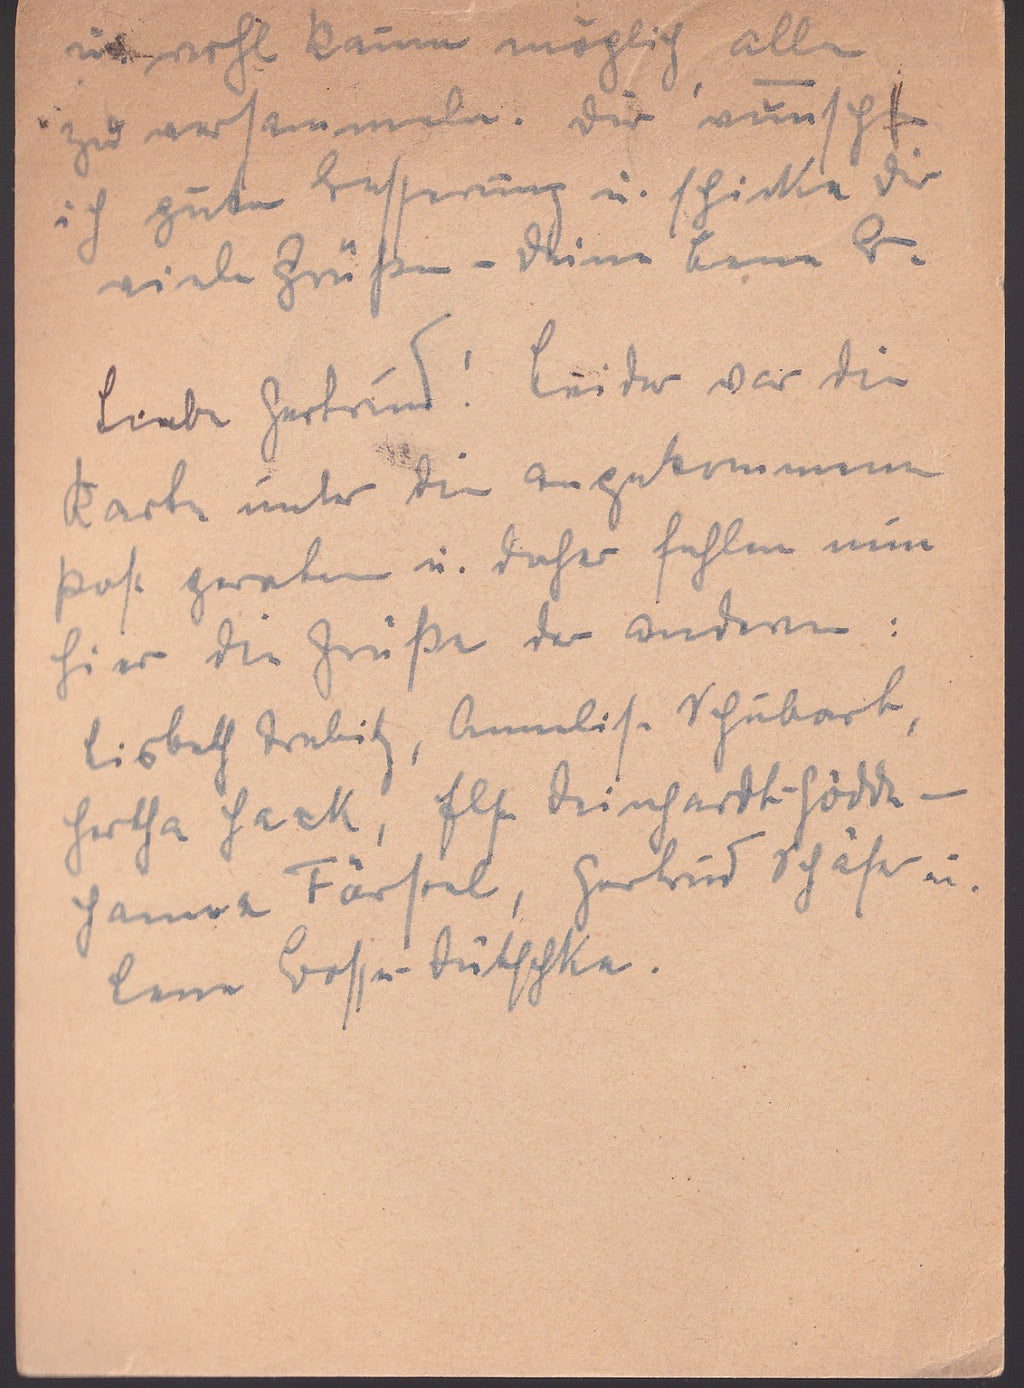 u. wohl kaum möglich, alle
zu versammeln. Dir wünsche
ich gute Besserung u. schicke Dir
viele Grüße – Deine Lene B.
Liebe Gertrud! Leider war die
Karte unter die angekommene
Post geraten u. daher fehlen nun
hier die Grüße der anderen:
Lisbeth Trebitz, Annelise Schubart,
Hertha Hack, Else Deinhardt-Hödde –
Hanna , Gertrud Schäfer u.
Lene Bosse-Dütschke.